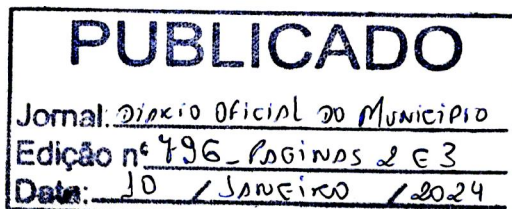 PUBLICADO
Jornal: Diário Oficial do Município
Edição nº 796 - Páginas 2 e 3
Data: 10 / Janeiro / 2024